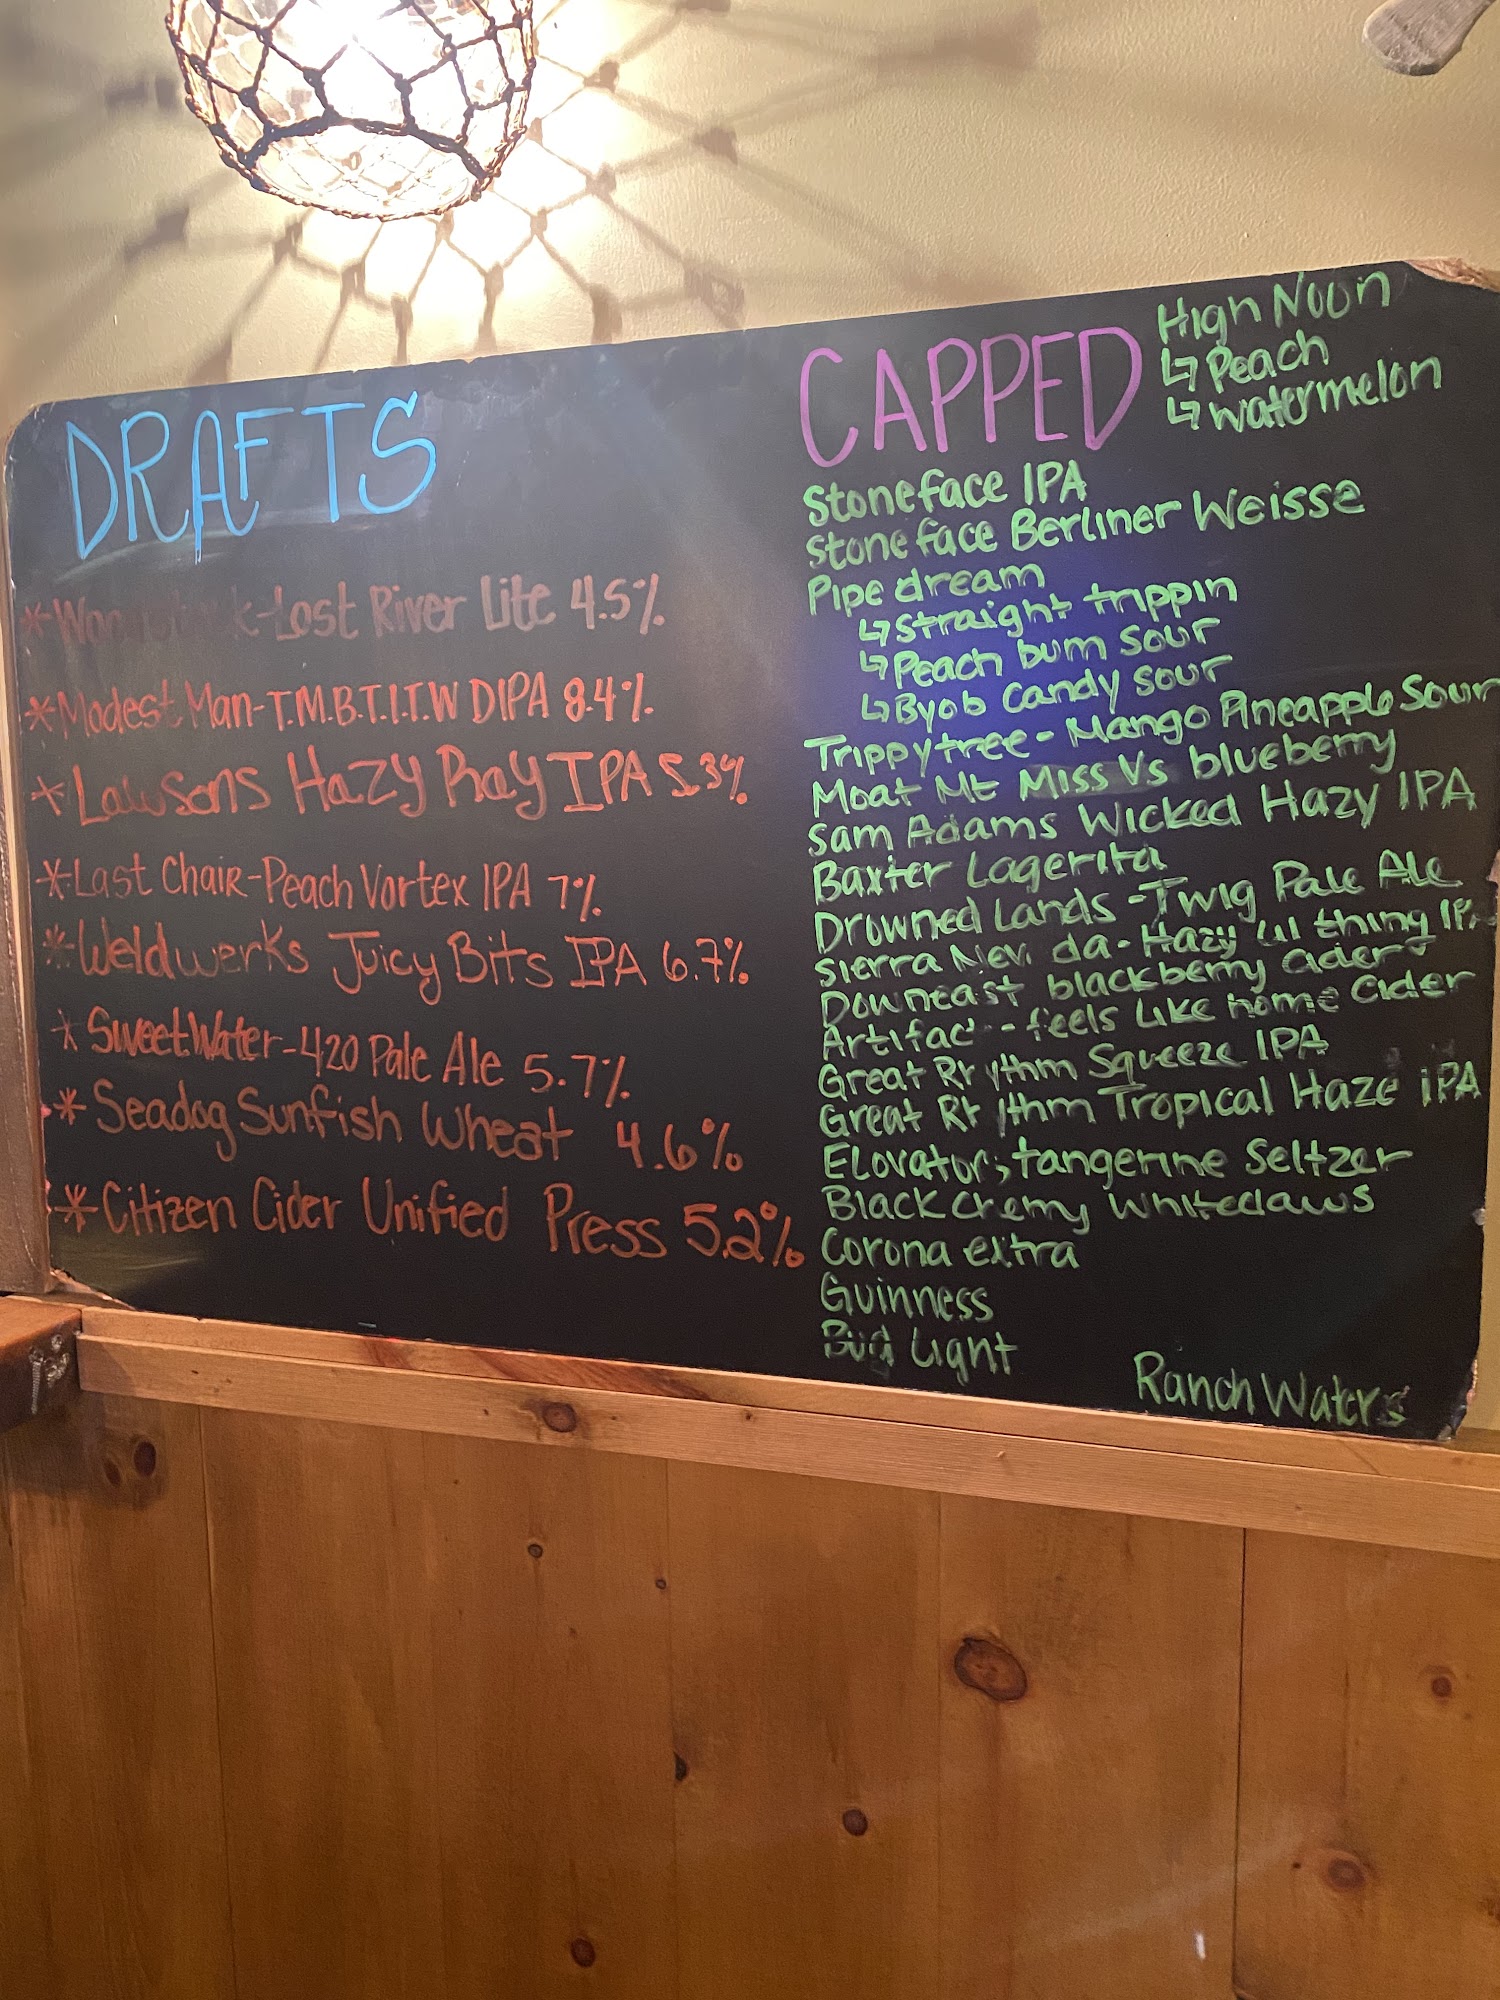 DRAFTS
*Wo k-Lost River Lite 4.5%
*Modest Man-T.M.B.T.I.T.W DIPA 8.4%
*Lawsons Hazy Ray IPA 5.3%
*Last Chair-Peach Vortex IPA 7%
*Weldwerks Juicy Bits IPA 6.7%
*SweetWater-420 Pale Ale 5.7%
*Seadog Sunfish Wheat 4.6%
*Citizen Cider Unified Press 5.2%
CAPPED
High Noon
↳Peach
↳watermelon
Stoneface IPA
Stoneface Berliner Weisse
Pipe dream
↳straight trippin
↳Peach bum sour
↳Byob Candy sour
Trippytree- Mango Pineapple Sour
Moat Mt Miss Vs blueberry
Sam Adams Wicked Hazy IPA
Baxter Lagerita
Drowned Lands -Twig Pale Ale
Sierra Nev da-Hazy lil thing IPA
Downeast blackberry cider
Artifac - feels like home Cider
Great Rhythm Squeeze IPA
Great Rhythm Tropical Haze IPA
Elovator, tangerine Seltzer
Black cherry whiteclaws
Corona extra
Guinness
Bud Light
Ranch Waters